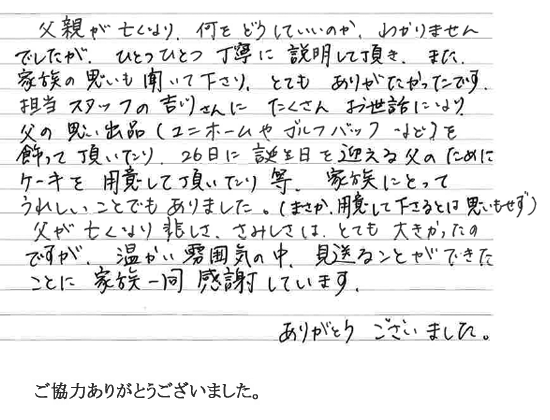 父親が亡くなり、何をどうしていいのか、わかりません
でしたが、ひとつひとつ丁寧に説明して頂き、また、
家族の思いも聞いて下さり、とてもありがたかったです。
担当スタッフの吉川さんにたくさんお世話になり
父の思い出品(ユニホームやゴルフバックなど)を
飾って頂いたり、26日に誕生日を迎える父のために
ケーキを用意して頂いたり等、家族にとって
うれしいことでもありました。(まさか、用意して下さるとは思いもせず)
父が亡くなり悲しさ、さみしさは、とても大きかったの
ですが、温かい雰囲気の中、見送ることができた
ことに家族一同感謝しています。
ありがとうございました。
ご協力ありがとうございました。